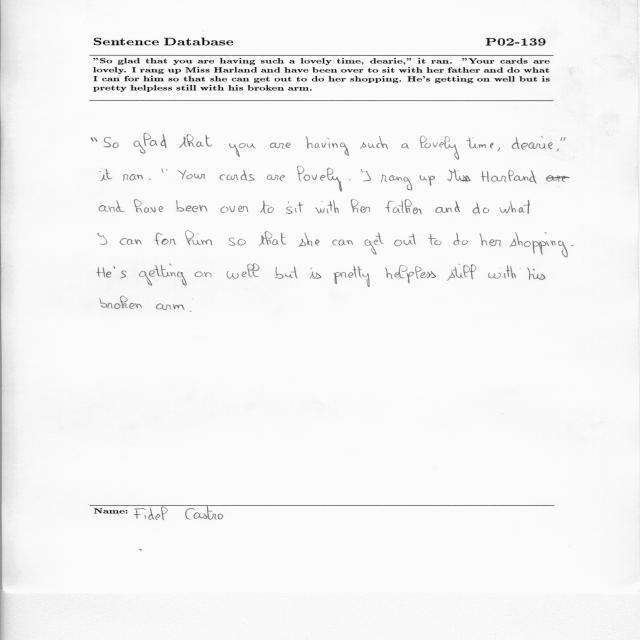 Sentence Database P02-139
"So glad that you are having such a lovely time, dearie," it ran. "Your cards are
lovely. I rang up Miss Harland and have been over to sit with her father and do what
I can for him so that she can get out to do her shopping. He's getting on well but is
pretty helpless still with his broken arm.
"So glad that you are having such a lovely time, dearie,"
it ran. "Your cards are lovely. I rang up Miss Harland are
and have been over to sit with her father and do what
I can for him so that she can get out to do her shopping.
He's getting on well but is pretty helpless still with his
broken arm.
Name: Fidel Castro